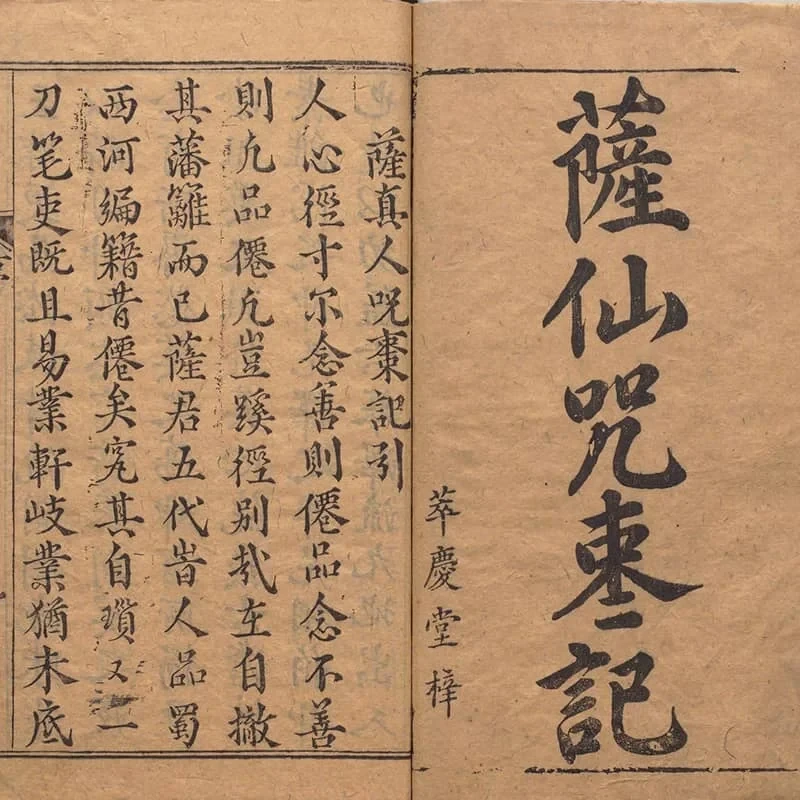 薩仙咒枣記
萃慶堂梓
薩真人呪棗記引
人心徑寸尔念善則僊品念不善
則凢品僊凢豈蹊徑別㢤在自撤
其藩籬而已薩君五代旹人品蜀
西河編籍昔僊矣究其自瑣又一
刀笔吏既且易業軒岐業猶未底